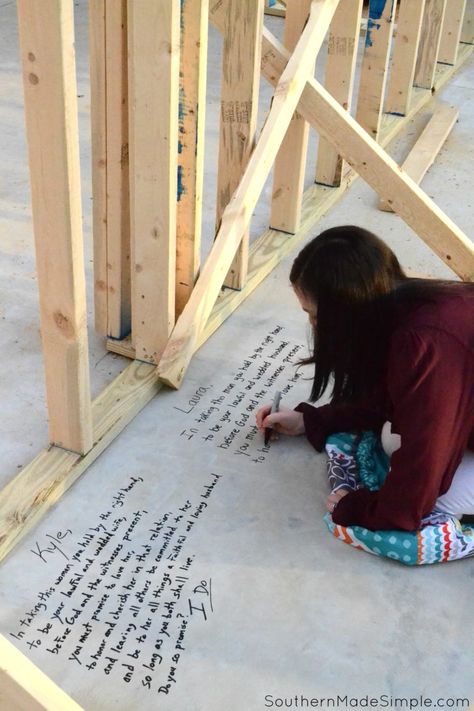 Laura,
In taking this man you hold by the right hand
to be your lawful and wedded husband
before God and the witnesses present,
you must
to
Kyle,
In taking this woman you hold by the right hand,
to be your lawful and wedded wife,
before God and the witnesses present,
you must promise to love her,
to honor and cherish her in that relation,
and leaving all others be committed to her
and be to her all things a faithful and loving husband
so long as you both shall live.
Do you so promise?
I Do
SouthernMadeSimple.com